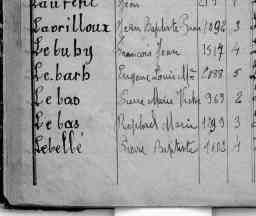 Laurent Jean
Lavrilloux Jean Baptiste 1892 3
Lebuby François Jean 1517 4
Lebarb Eugène Louis Mie 2888 5
Lebas Pierre Marie Victor 969 2
Lebas Raphaël Marin 1899 3
Lebellé Pierre Baptiste 1